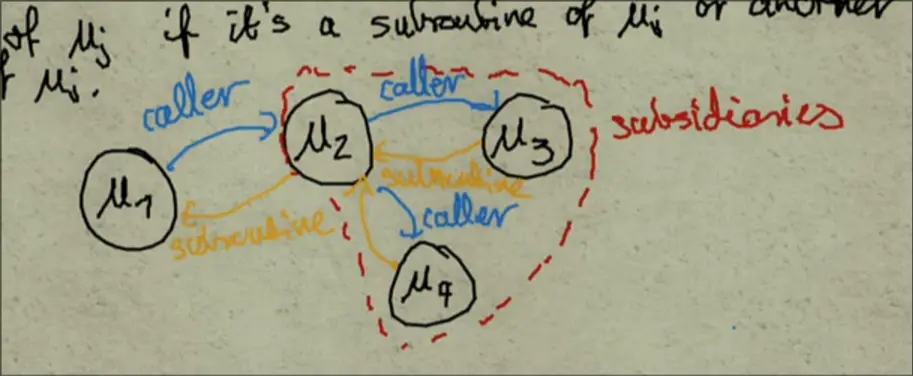 of μj if it's a subroutine of μi or another
μi.
caller
caller
subsidiaries
μ2
μ3
μ1
subroutine
subroutine
caller
μ4